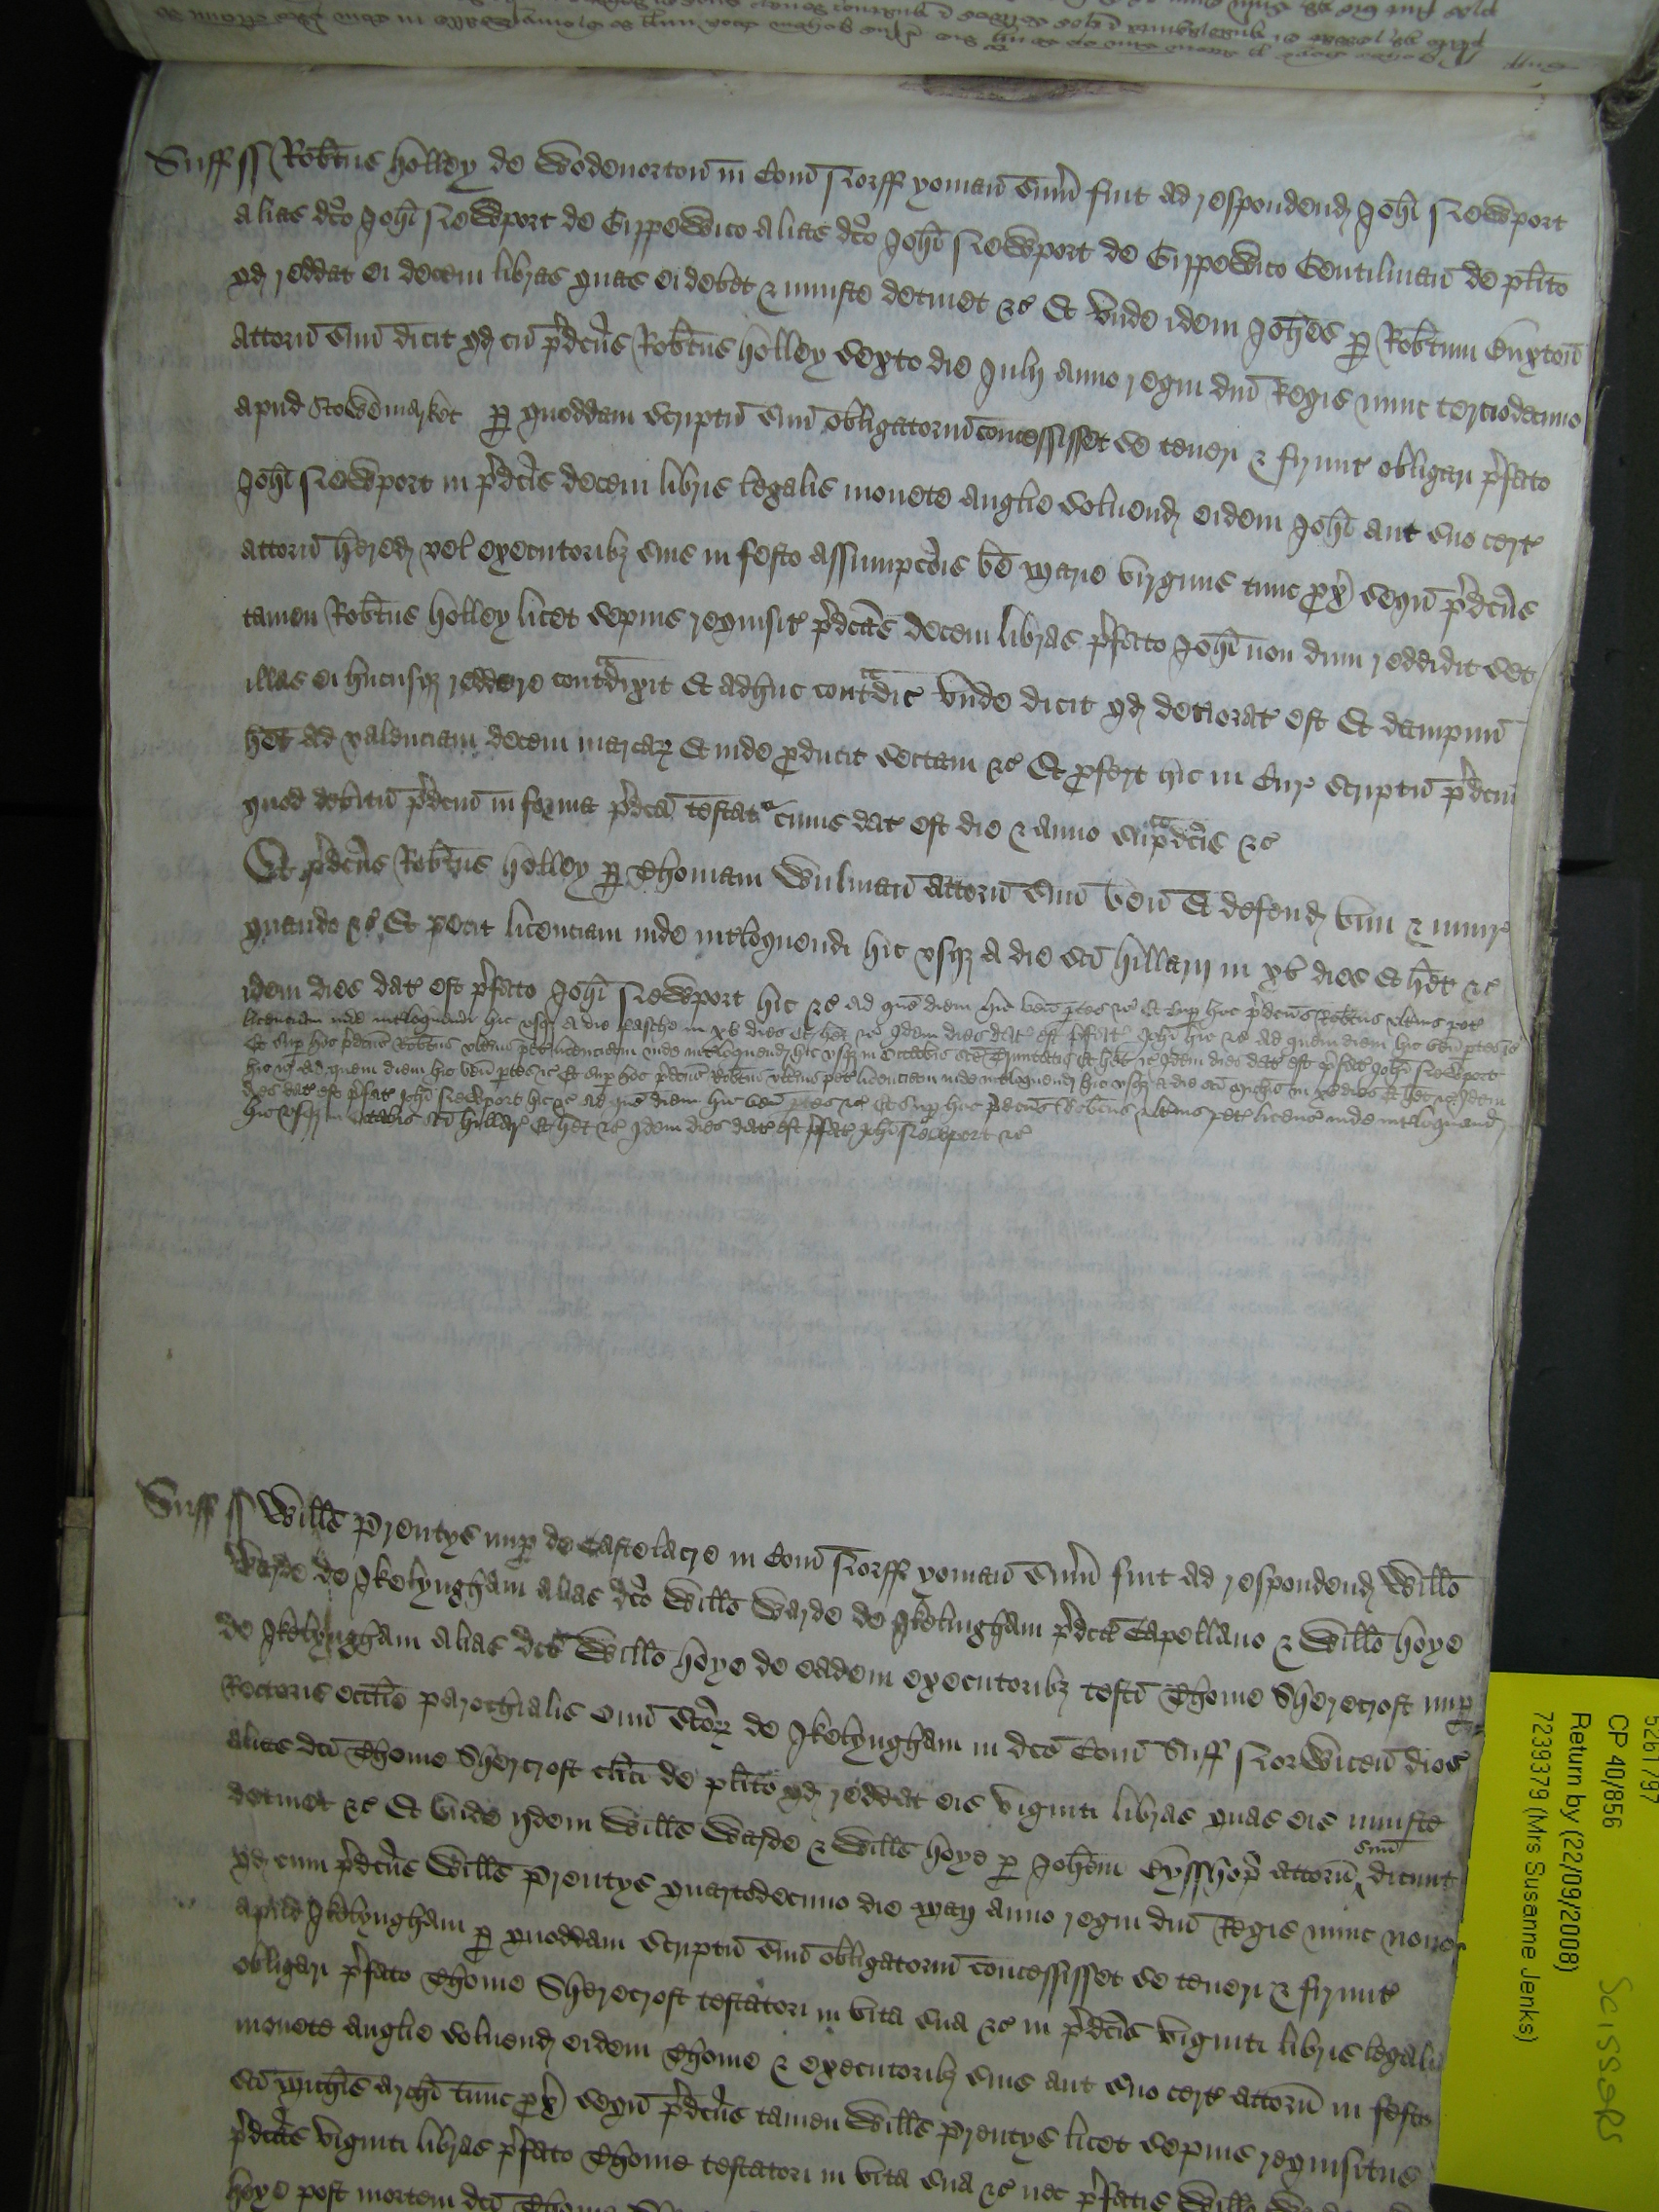 Suff ss Rob̄tus Holley de Wodenorton in Com̄ Norff yoman sum̄ fuit ad respondend Joh̄i Newport
alias dc̄o Joh̄i Newport de Gippewico alias dc̄o Joh̄i Newport de Gippewico Gentilman de pl̄ito
qd reddat ei decem libras quas ei debet & iniuste detinet &c Et unde idem Joh̄es p Rob̄tum Buxton
attorn̄ suū dicit qd cū p̄dc̄us Rob̄tus Holley sexto die Julij anno regni dn̄i Regis nunc terciodecimo
apud Stowemarket p quoddam scriptū suū obligatoriū concessisset se teneri & firmit obligari p̄fato
Joh̄i Newport in p̄dc̄is decem libris legalis monete Anglie soluend eidem Joh̄i aut suo cert
attorn̄ hered vel executorib3 suis in festo Assumpc̄ois be Marie virginis tunc px̄ sequ p̄dc̄us
tamen Rob̄tus Holley licet sepius requisit p̄dc̄as decem libras p̄fato Joh̄i non dum reddidit set
illas ei hucusq3 reddere contᵃdixit Et adhuc contᵃdic Unde dicit qd detiorat est Et dampnū
het ad valenciam decem marcar Et inde producit sectam &c Et profert hic in Cur scriptū p̄dc̄m
quod debitū p̄dc̄m in forma p̄dc̄a testatʳ cuius dat est die & anno supᵃdc̄is &c
Et p̄dc̄us Rob̄tus Holley p Thomam Wulman attorn̄ suū ven̄ Et defend vim & iniur
quando &c Et petit licenciam inde int̄loquendi hic usq3 a die sc̄i Hillarij in xv dies Et h̄et &c
idem dies dat est p̄fato Joh̄i Newport hic &c Ad quē diem hic ven̄ ptes &c Et sup hoc p̄dc̄us Rob̄tus ult̄ius pet
licenciam inde int̄loquendi hic usq3 a die Pasche in xv dies Et h̄et &c Idem dies dat est p̄fat Joh̄i hic &c Ad quem diem hic ven̄ ptes &c
Et sup hoc p̄dc̄us Rob̄tus ult̄ius pet licenciam inde int̄loquend hic usq3 in Octabis sc̄e Trinitatis Et h̄et &c Idem dies dat est p̄fat Joh̄i Newport
hic &c Ad quem diem hic ven̄ ptes &c Et sup hoc p̄dc̄us Rob̄tus ult̄ius pet licenciam inde int̄loquend hic usq3 a die sc̄i Mich̄is in xv dies Et h̄et &c Idem
dies dat est p̄fat Joh̄i Newport hic &c Ad quē diem hic ven̄ ptes &c Et sup hoc p̄dc̄us Rob̄tus ult̄ius pet licenc̄ inde int̄loquend
hic usq3 in Octabis sc̄i Hillar Et h̄et &c Idem dies dat est p̄fat Joh̄i Newport &c
Suff ss Will̄s Prentys nup de Castelacre in Com̄ Norff yoman sum̄ fuit ad respondend Will̄o
Warde de Ikelyngham alias dc̄o Will̄o Warde de Ikelingham p̄dc̄a Capellano & Will̄o Hoye
de Ikelyngham alias dc̄o Will̄o Hoye de eadem executorib3 testī Thome Sherecroft nup
Rectoris eccl̄ie parochialis om̄i Sc̄or de Ikelyngham in dc̄o Com̄ Suff Norwicen̄ dioc̄
alias dc̄i Thome Shercroft cl̄ici de pl̄ito qd reddat eis viginti libras quas eis iniuste
detinet &c Et unde ijdem Will̄s Warde & Will̄s Hoye p Joh̄em Bysshop attorn̄ suū dicunt
qd cum p̄dc̄us Will̄s Prentys quartodecimo die Maij anno regni dn̄i Regis nunc nono
apud Ikelyngham p quoddam scriptū suū obligatoriū concessisset se teneri & firmit
obligari p̄fato Thome Sherecroft testatori in vita sua &c in p̄dc̄is viginti libris legalis
monete Anglie soluend eidem Thome & executorib3 suis aut suo cert attorn̄ in festo
sc̄i Mich̄is arch̄i tunc px̄ sequ p̄dc̄us tamen Will̄s Prentys licet sepius requisitus
p̄dc̄as viginti libras p̄fato Thome testatori in vita sua &c nec p̄fatis Will̄o
Hoye post mortem dc̄i Thome
5261797
CP 40/856
Return by (22/09/2008)
7239379 (Mrs Susanne Jenks)
SCISSORS